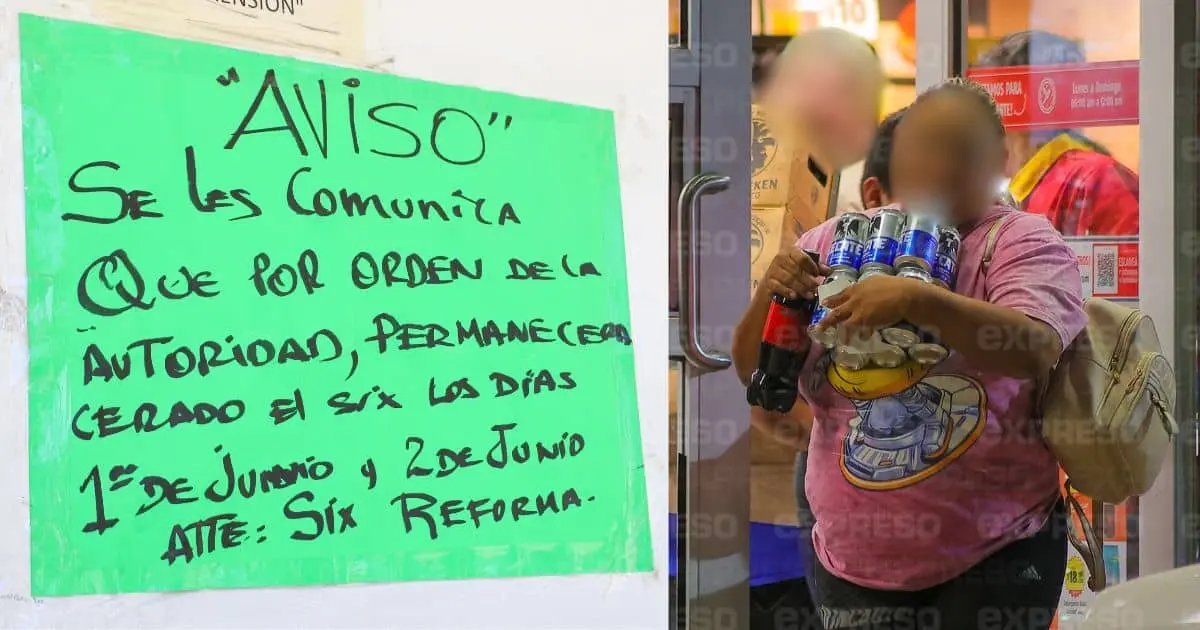 ENSIÓN"
"AViSO"
SE LES COMUNICA
QUE POR ORDEN DE LA
AUTORIDAD, PERMANECERA
CERADO El SIX LOS DÍAS
1er DE JUNNIO y 2 DE JUNIO
ATTE: SIX REFORMA.
EXPRESO
10
TAMOS PARA
Lunes a Domingo
CKEN
EXPRESO